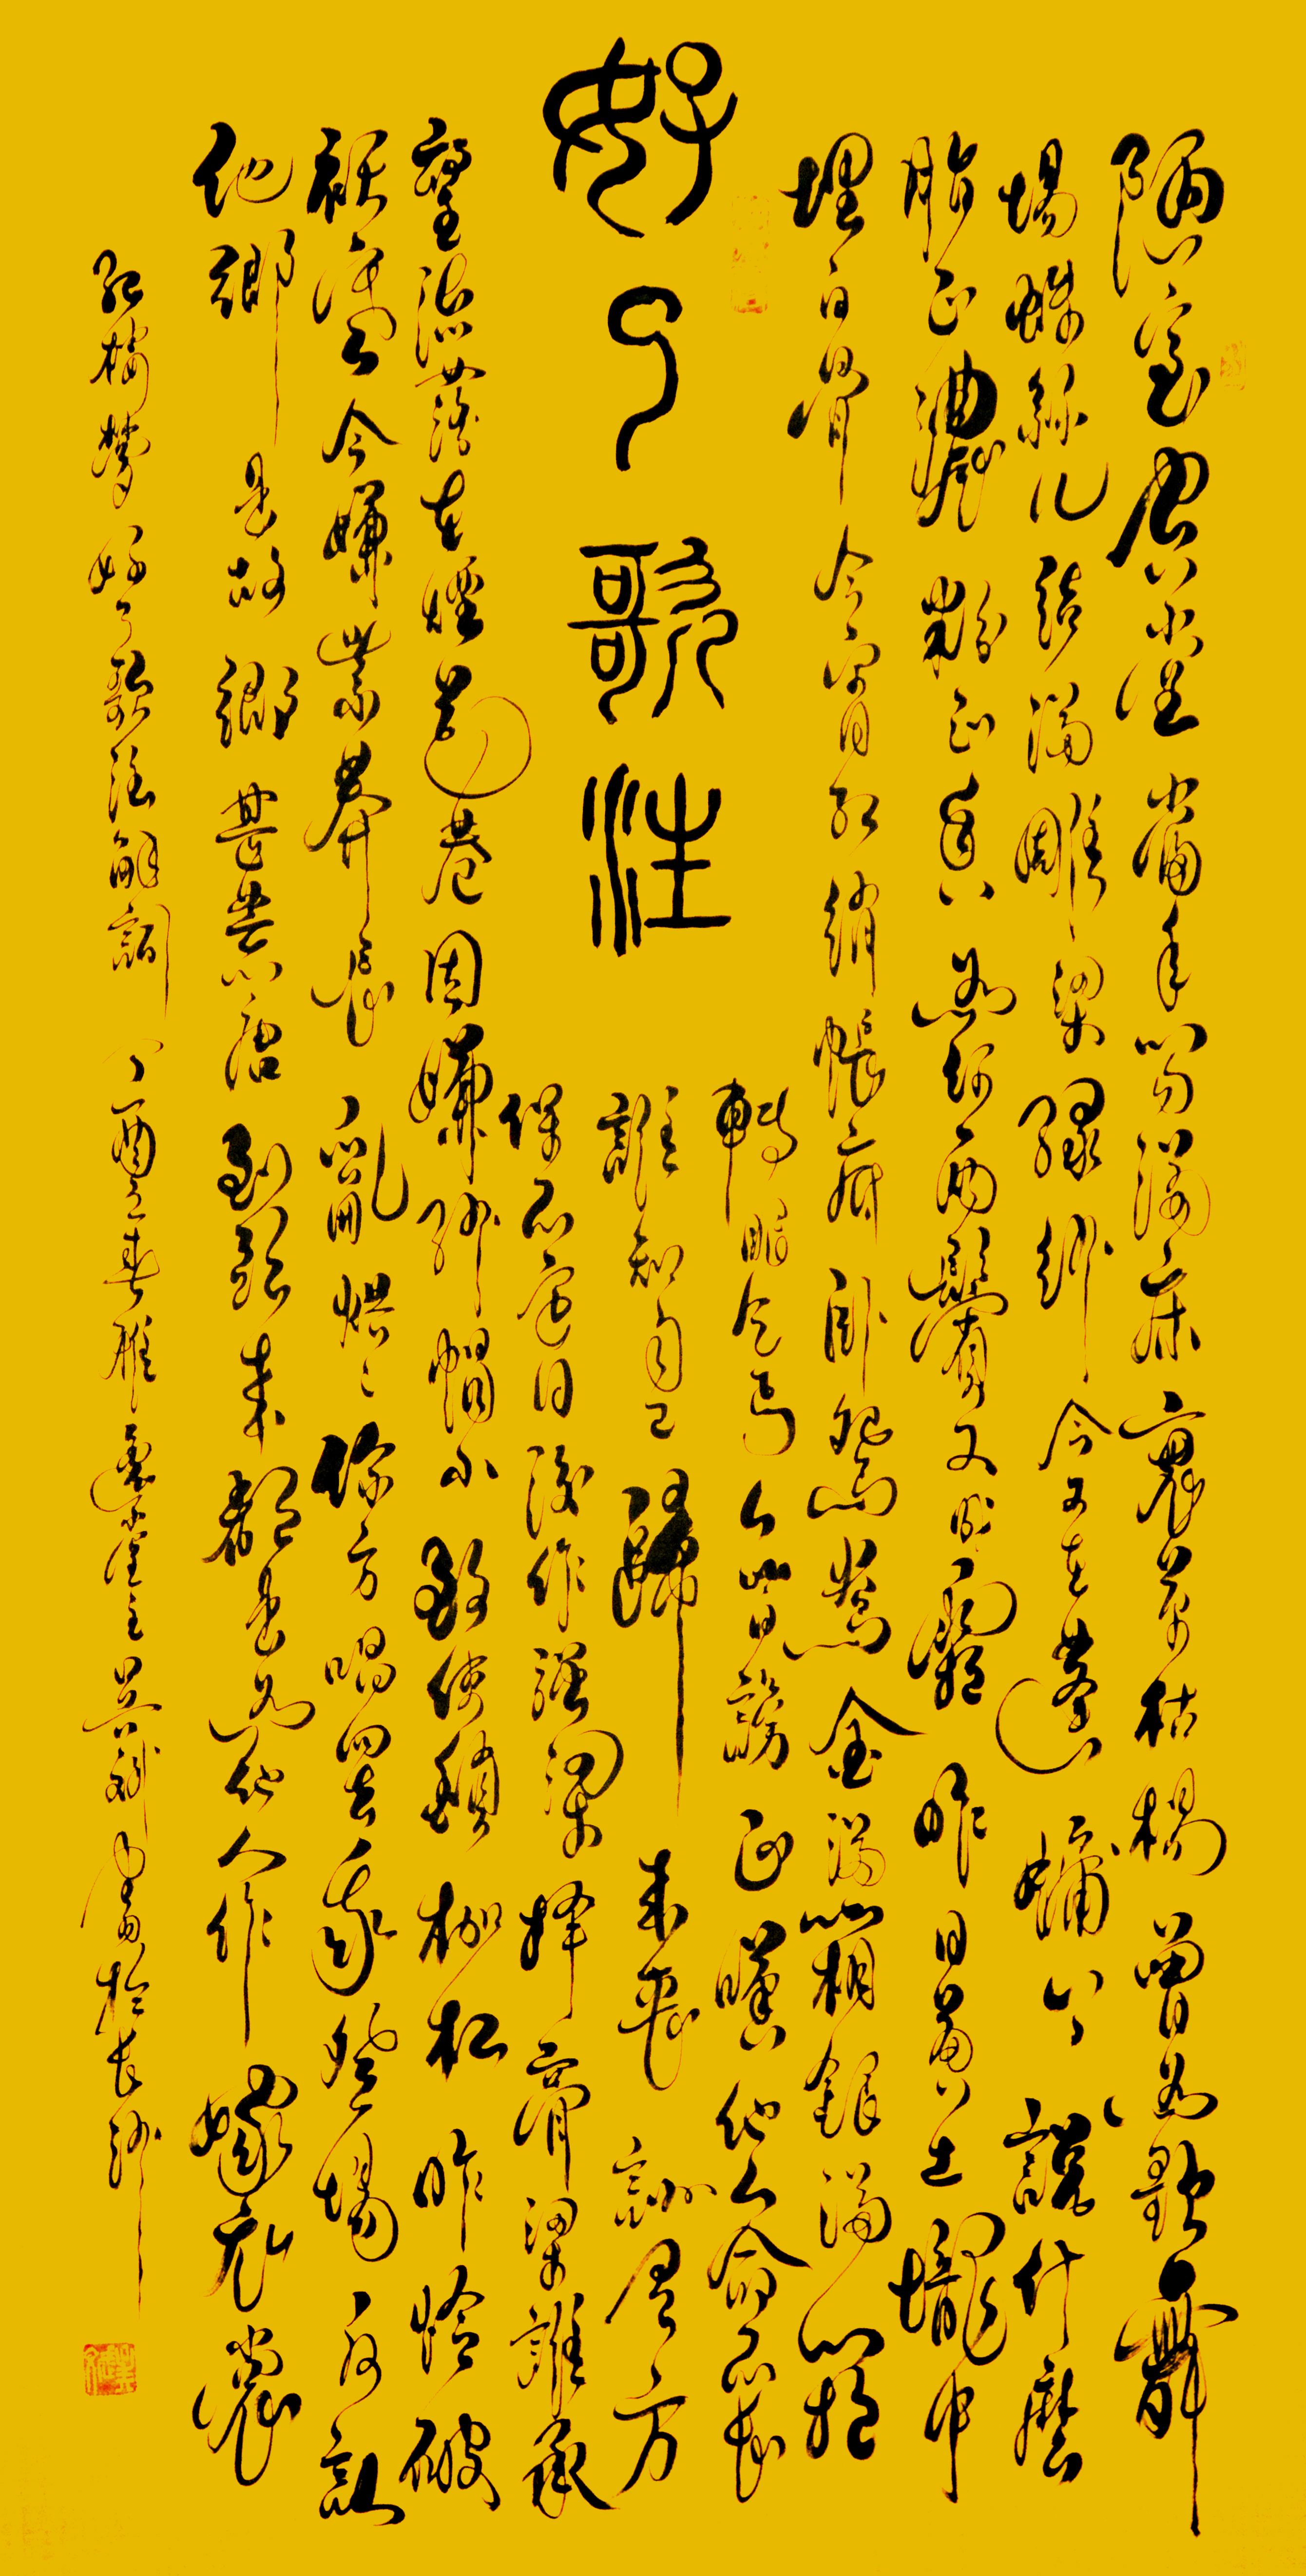 好了歌注
陋室空堂當年笏滿床衰草枯楊曾為歌舞
場蛛絲兒結滿雕梁綠紗今又在蓬牖上說什麼
脂正濃粉正香如何兩鬢又成霜昨日黃土壠中
埋白骨今宵紅綃帳底臥鴛鴦金滿箱銀滿箱
轉眼乞丐人皆謗正嘆他人命不長
誰知自己歸來喪訓有方
保不定日後作強梁擇膏粱誰承
望流落在煙花巷因嫌紗帽小致使鎖枷杠昨憐破
襖寒今嫌紫蟒長亂烘々你方唱罷我登場反認
他鄉是故鄉甚荒唐到頭來都是為他人作嫁衣裳
紅樓夢好了歌注解詞丁酉立春雁堂主吳書於長沙